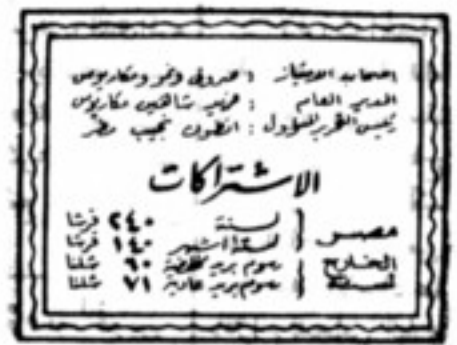 اصحاب الامتياز : صروف ونمر ومكاريوس
المدير العام : شاهين مكاريوس
رئيس التحرير المسؤول : انطون نجيب مطر
الاشتراكات
مصر لسنة ٢٤٠ قرشا
لستة اشهر ١٤٠ قرشا
الخارج رسوم بريد مخفضة ٦٠ شلنا
لسنة رسوم بريد عادية ٧١ شلنا